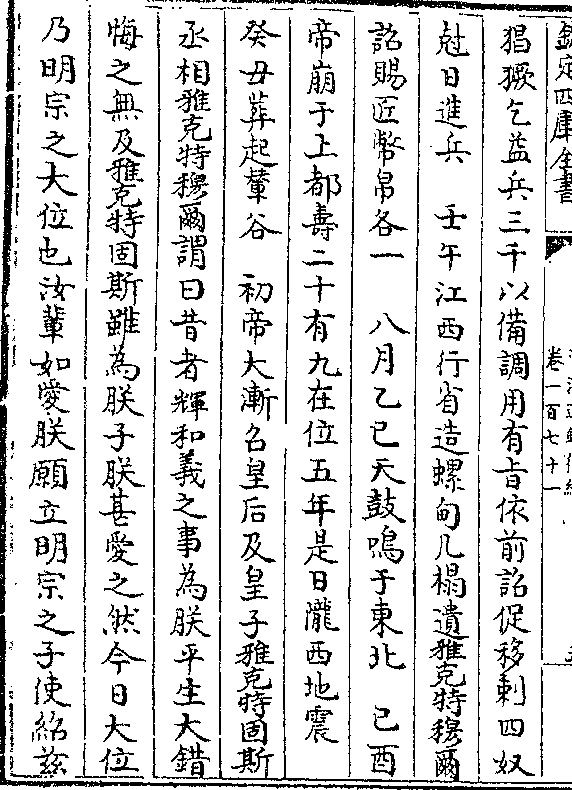 欽定四庫全書
卷一百七十一
猖獗乞益兵三千以備調用有旨依前詔促移剌四奴
尅日進兵　壬午江西行省造螺甸几榻遺雅克特穆爾
詔賜匠幣帛各一　八月乙巳天鼓鳴于東北　己酉
帝崩于上都壽二十有九在位五年是日隴西地震
癸丑葬起輦谷　初帝大漸召皇后及皇子雅克特固斯
丞相雅克特穆爾謂曰昔者輝和義之事為朕平生大錯
悔之無及雅克特固斯雖為朕子朕甚愛之然今日大位
乃明宗之大位也汝輩如愛朕願立明宗之子使紹茲